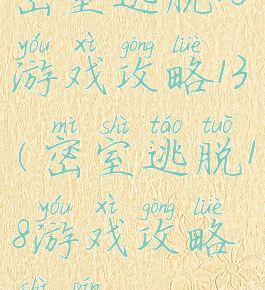 密室逃脱
yóu xì gōng lüè
游戏攻略13
mì shì táo tuō
(密室逃脱1
yóu xì gōng lüè
8游戏攻略
shì pín